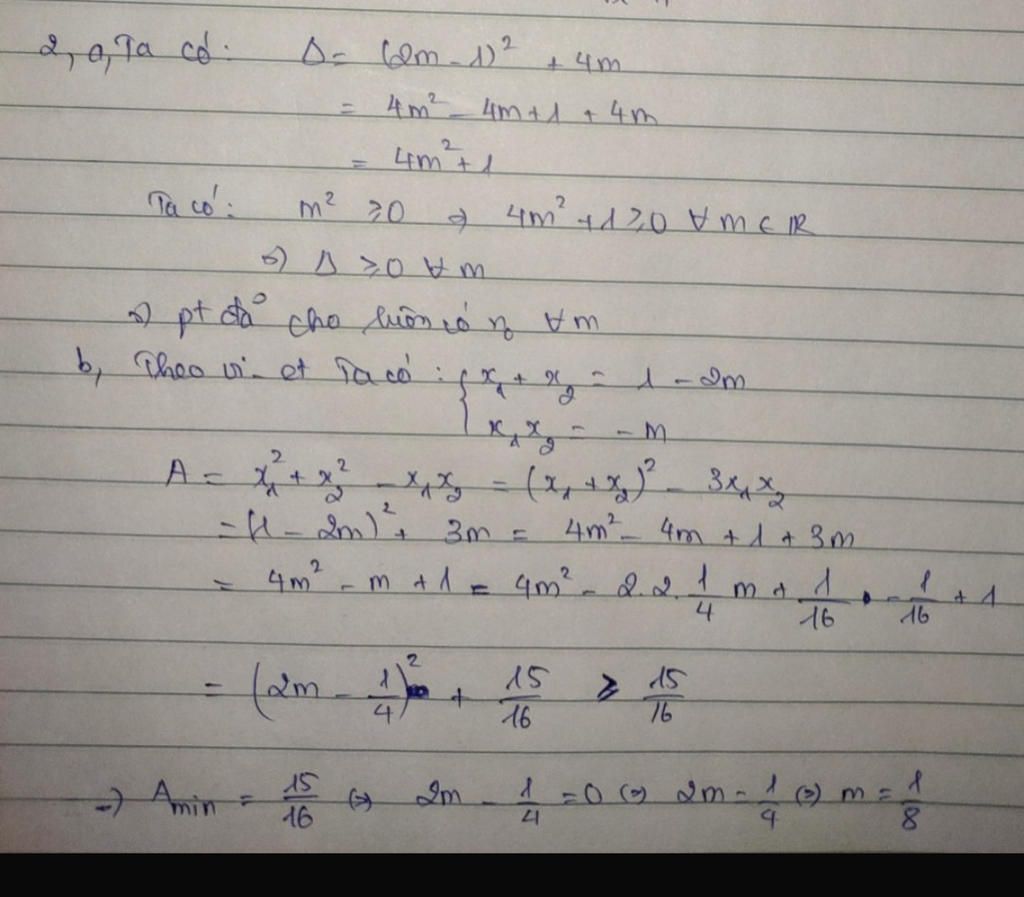 2, a, Ta có: Δ = (2m - 1)² + 4m
= 4m² - 4m + 1 + 4m
= 4m² + 1
Ta có: m² ≥ 0 ⇒ 4m² + 1 ≥ 0 ∀ m ∈ R
⇒ Δ ≥ 0 ∀ m
⇒ pt đã cho luôn có n₀ ∀ m
b, Theo vi-et Ta có: { x₁ + x₂ = 1 - 2m
x₁x₂ = -m
A = x₁² + x₂² - x₁x₂ = (x₁ + x₂)² - 3x₁x₂
= (1 - 2m)² + 3m = 4m² - 4m + 1 + 3m
= 4m² - m + 1 = 4m² - 2.2.1/4 m + 1/16 - 1/16 + 1
= (2m - 1/4)² + 15/16 ≥ 15/16
⇒ Amin = 15/16 ⇔ 2m - 1/4 = 0 ⇔ 2m = 1/4 ⇔ m = 1/8